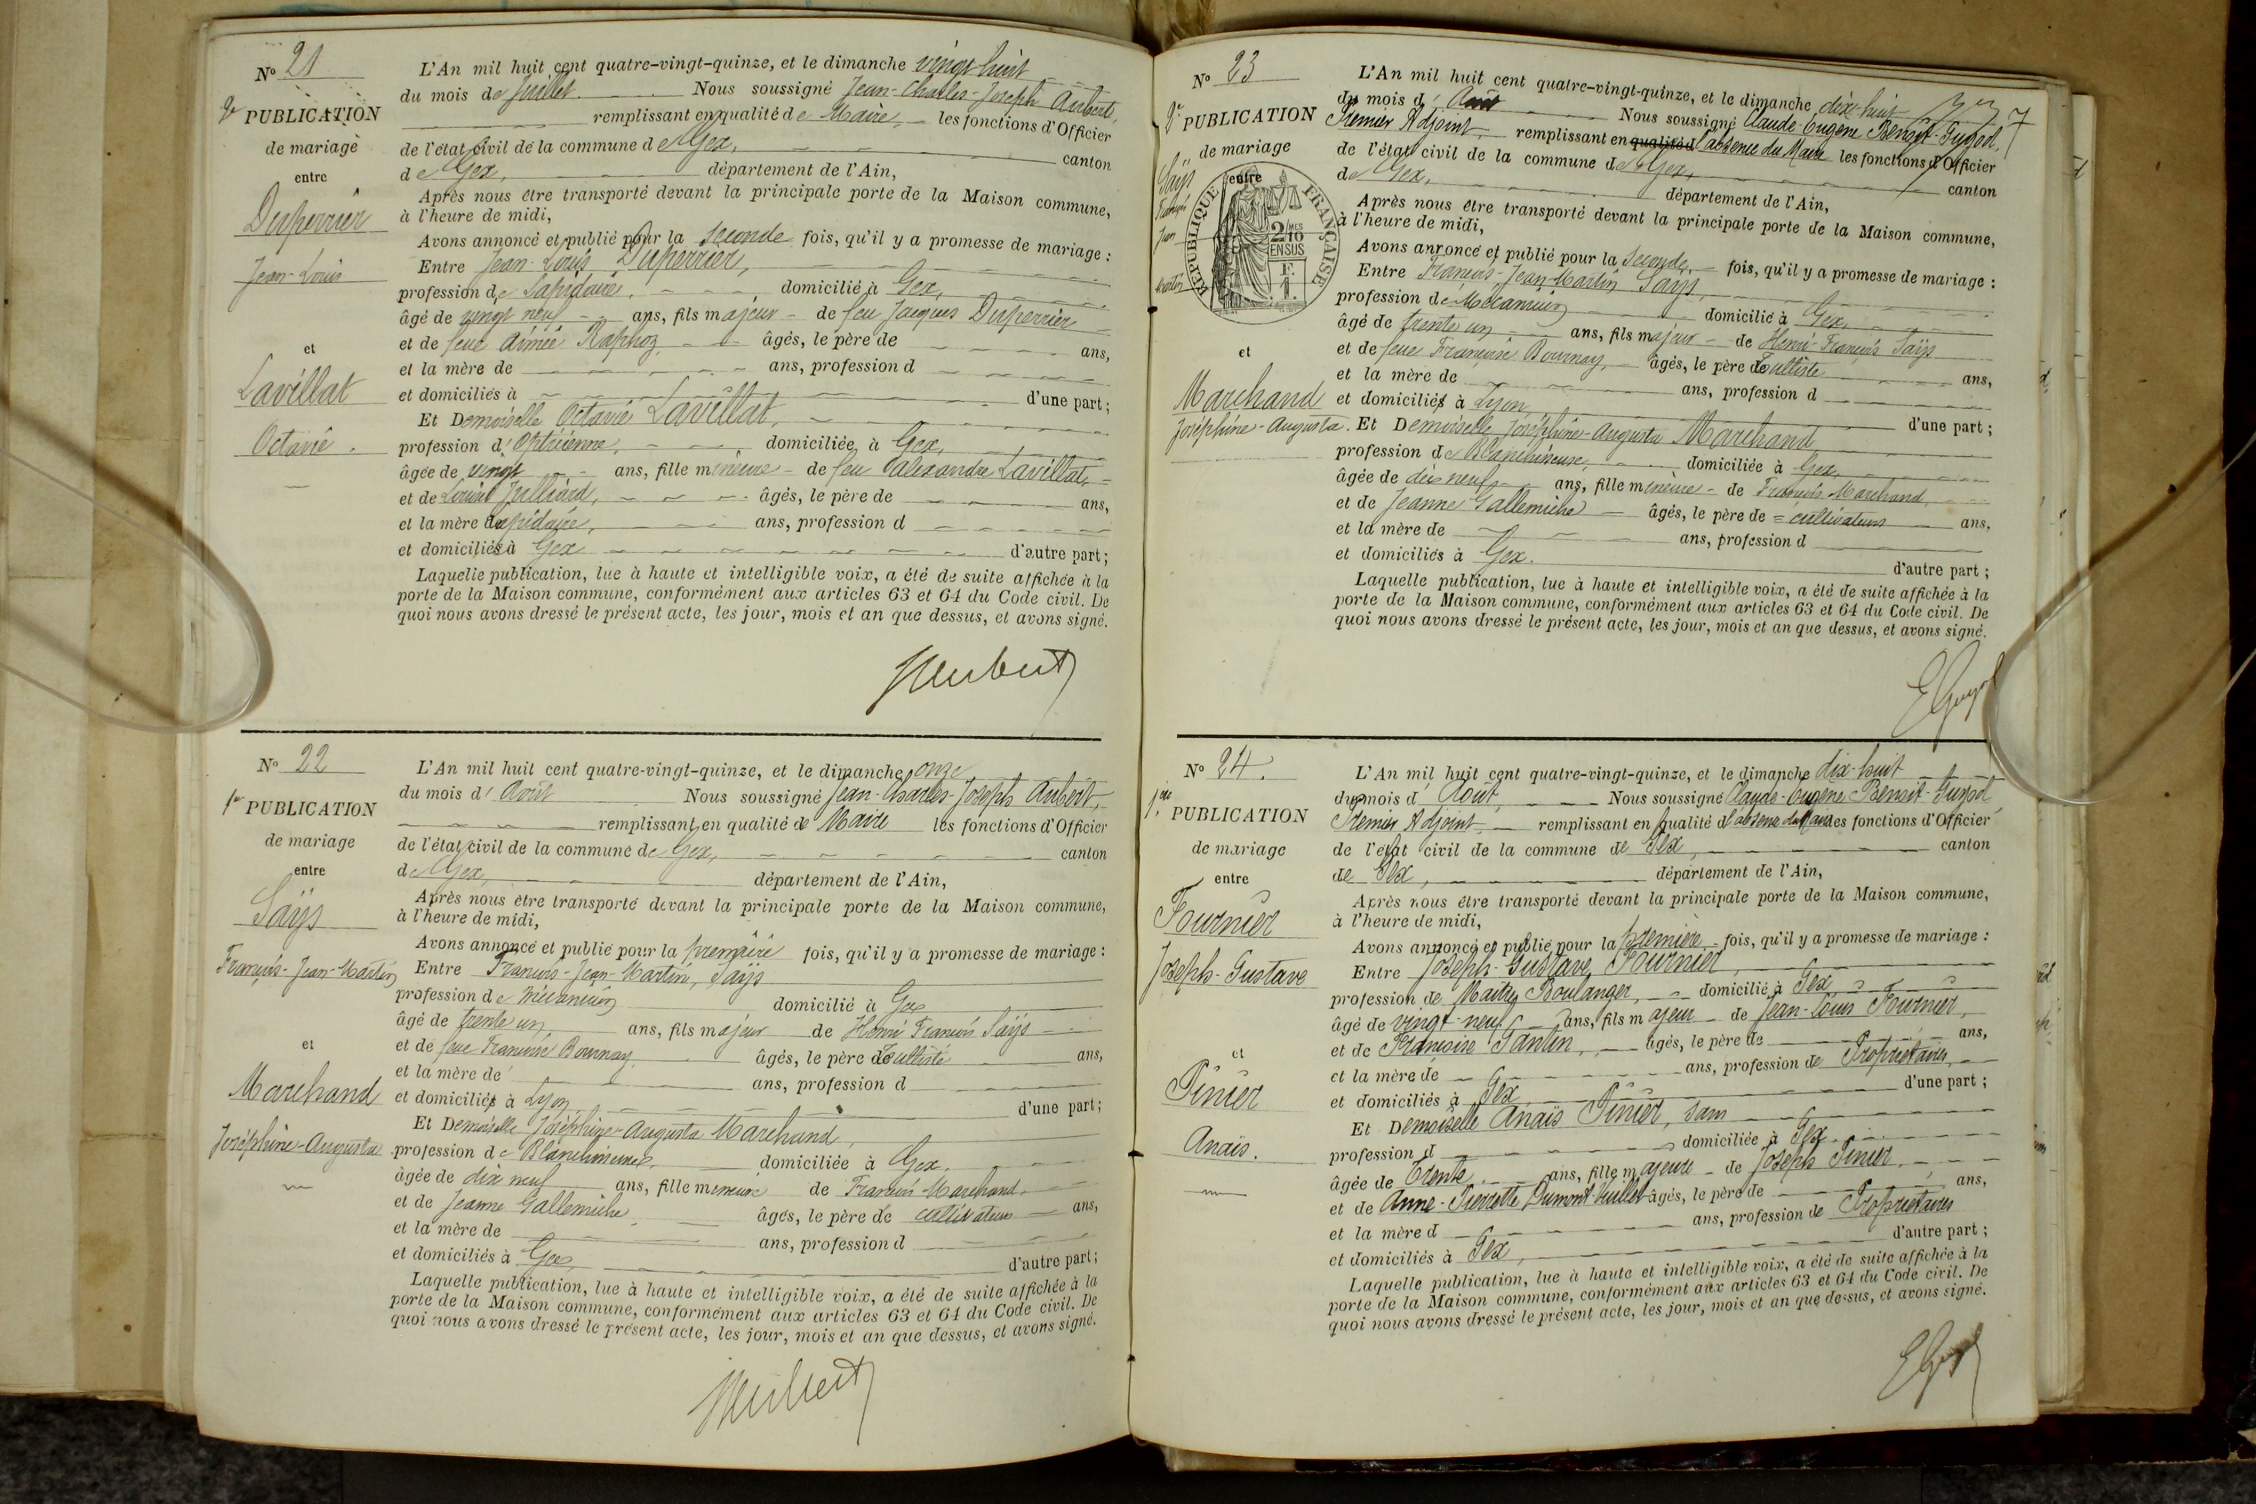 No 21
2e PUBLICATION
de mariage
entre
Duperrier
Jean-Louis
et
Lavillat
Octavie.
L'An mil huit cent quatre-vingt-quinze, et le dimanche vingt huit
du mois de Juillet Nous soussigné Jean-Charles-Joseph Aubert,
remplissant en qualité de Maire, les fonctions d'Officier
de l'état civil de la commune de Gex, canton
de Gex, département de l'Ain,
Après nous être transporté devant la principale porte de la Maison commune,
à l'heure de midi,
Avons annoncé et publié pour la seconde fois, qu'il y a promesse de mariage :
Entre Jean-Louis Duperrier,
profession de Lapidaire, domicilié à Gex,
âgé de vingt neuf ans, fils majeur de feu Jacques Duperrier
et de feue Aimée Raphoz âgés, le père de ans,
et la mère de ans, profession d
et domiciliés à d'une part ;
Et Demoiselle Octavie Lavillat,
profession d'Opticienne, domiciliée à Gex,
âgée de vingt ans, fille mineure de feu Alexandre Lavillat,
et de Louise Julliard, âgés, le père de ans,
et la mère Lapidaire, ans, profession d
et domiciliés à Gex d'autre part ;
Laquelle publication, lue à haute et intelligible voix, a été de suite affichée à la
porte de la Maison commune, conformément aux articles 63 et 64 du Code civil. De
quoi nous avons dressé le présent acte, les jour, mois et an que dessus, et avons signé.
JAubert
No 22
1re PUBLICATION
de mariage
entre
Saÿs
François-Jean-Martin
et
Marchand
Joséphine-Augusta
L'An mil huit cent quatre-vingt-quinze, et le dimanche onze
du mois d'Août Nous soussigné Jean-Charles-Joseph Aubert,
remplissant en qualité de Maire les fonctions d'Officier
de l'état civil de la commune de Gex, canton
de Gex, département de l'Ain,
Après nous être transporté devant la principale porte de la Maison commune,
à l'heure de midi,
Avons annoncé et publié pour la première fois, qu'il y a promesse de mariage :
Entre François-Jean-Martin, Saÿs
profession de Mécanicien domicilié à Gex
âgé de trente un ans, fils majeur de Henri François Saÿs
et de feue Françoise Bournay. âgés, le père de ans,
et la mère de ans, profession d
et domiciliés à Lyon d'une part ;
Et Demoiselle Joséphine-Augusta Marchand,
profession de Blanchisseuse, domiciliée à Gex.
âgée de dix neuf ans, fille mineure de François Marchand,
et de Jeanne Gallemiche, âgés, le père de cultivateurs ans,
et la mère de ans, profession d
et domiciliés à Gex, d'autre part ;
Laquelle publication, lue à haute et intelligible voix, a été de suite affichée à la
porte de la Maison commune, conformément aux articles 63 et 64 du Code civil. De
quoi nous avons dressé le présent acte, les jour, mois et an que dessus, et avons signé.
JAubert
No 23
2e PUBLICATION
de mariage
entre
Saÿs
François
Jean
Martin
RÉPUBLIQUE FRANÇAISE
2/10MES
EN SUS
F.
1.
et
Marchand
Joséphine-Augusta.
7
L'An mil huit cent quatre-vingt-quinze, et le dimanche dix-huit
du mois d'Août Nous soussigné Claude-Eugène Benoît-Guyod,
Premier Adjoint, remplissant en qualité d l'absence du Maire les fonctions d'Officier
de l'état civil de la commune de Gex, canton
de Gex, département de l'Ain,
Après nous être transporté devant la principale porte de la Maison commune,
à l'heure de midi,
Avons annoncé et publié pour la seconde, fois, qu'il y a promesse de mariage :
Entre François-Jean-Martin Saÿs,
profession de Mécanicien domicilié à Gex,
âgé de trente un ans, fils majeur de Henri-François Saÿs
et de feue Françoise Bournay, âgés, le père de ans,
et la mère de ans, profession d
et domiciliés à Lyon d'une part ;
Et Demoiselle Joséphine-Augusta Marchand
profession de Blanchisseuse, domiciliée à Gex,
âgée de dix neuf ans, fille mineure de François Marchand
et de Jeanne Gallemiche âgés, le père de cultivateurs ans,
et la mère de ans, profession d
et domiciliés à Gex. d'autre part ;
Laquelle publication, lue à haute et intelligible voix, a été de suite affichée à la
porte de la Maison commune, conformément aux articles 63 et 64 du Code civil. De
quoi nous avons dressé le présent acte, les jour, mois et an que dessus, et avons signé.
EGuyod
No 24.
1re PUBLICATION
de mariage
entre
Fournier
Joseph-Gustave
et
Pinier
Anaïs.
L'An mil huit cent quatre-vingt-quinze, et le dimanche dix-huit
du mois d'Août, Nous soussigné Claude-Eugène Benoît-Guyod,
Premier Adjoint, remplissant en qualité d l'absence du Maire les fonctions d'Officier
de l'état civil de la commune de Gex, canton
de Gex, département de l'Ain,
Après nous être transporté devant la principale porte de la Maison commune,
à l'heure de midi,
Avons annoncé et publié pour la première fois, qu'il y a promesse de mariage :
Entre Joseph-Gustave Fournier,
profession de Maître Boulanger, domicilié à Gex
âgé de vingt-neuf ans, fils majeur de Jean-Louis Fournier,
et de Françoise Pantin, âgés, le père de ans,
et la mère de ans, profession de Propriétaires,
et domiciliés à Gex d'une part ;
Et Demoiselle Anaïs Pinier, sans
profession d domiciliée à Gex
âgée de Trente ans, fille majeure de Joseph Pinier,
et de Anne-Pierrette Dumont-Guillot âgés, le père de ans,
et la mère d ans, profession de Propriétaires
et domiciliés à Gex, d'autre part ;
Laquelle publication, lue à haute et intelligible voix, a été de suite affichée à la
porte de la Maison commune, conformément aux articles 63 et 64 du Code civil. De
quoi nous avons dressé le présent acte, les jour, mois et an que dessus, et avons signé.
EGuyod